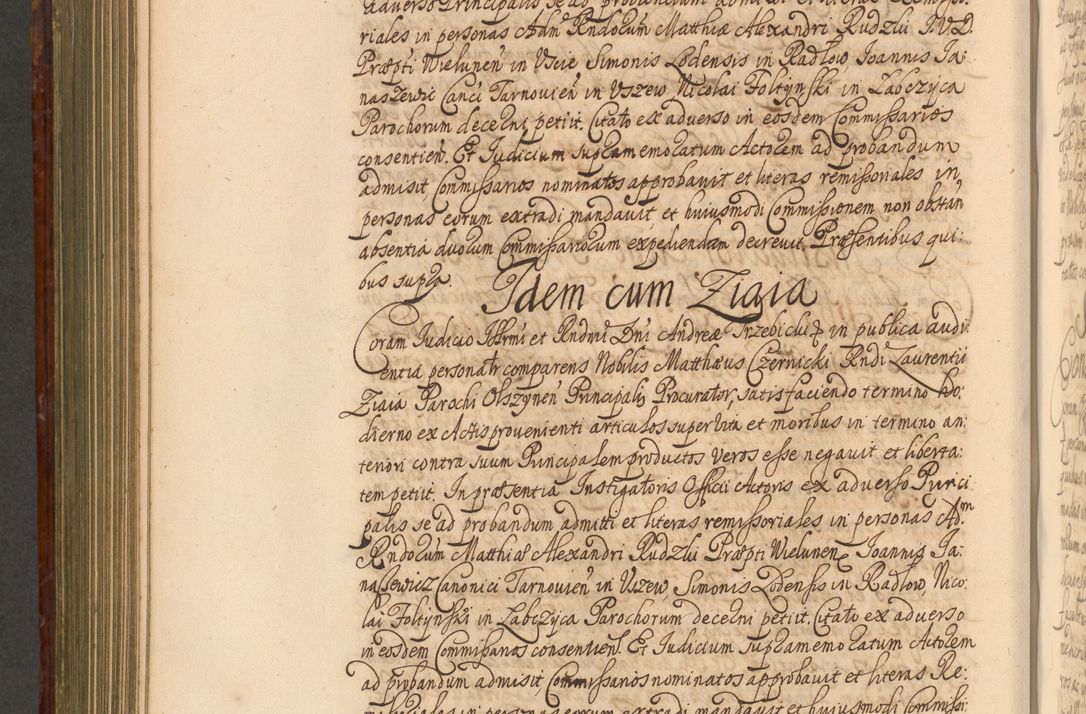 riales in personas Adm Rndorum Matthiæ Alexandri Rudzki I.V.D.
Præpti Wielunen in Uscie Simonis Lodensis in Radłow, Joannis Ja:
naszewic Canci Tarnovien in Uszew Nicolai Foltynski in Zabczyca
Parochorum decerni petiit. Citato ex adverso in eosdem Commissarios
consentien. Et Judicium supramemoratum Actorem ad probandum
admisit Commissarios nominatos approbavit et literas remissoriales in
personas eorum extradi mandavit et huiusmodi Commissionem non obstan
absentia duorum Commissariorum expediendam decrevit, Præsentibus qui:
bus supra.
Idem cum Ziaia
Coram Judicio Illrmi et Rndmi Dni Andreæ Trzebicki in publica audi:
entia personalr comparens Nobilis Matthæus Czernicki Rndi Laurentii
Ziaia Parochi Olszynen Principalis Procurator, satisfaciendo termino ho:
dierno ex Actis provenienti articulos super vita et moribus in termino an:
teriori contra suum Principalem productos veros esse negavit et liberta:
tem petiit. In præsentia Instigatoris Officii Actoris ex adverso Princi
palis se ad probandum admitti et literas remissoriales in personas Adm
Rndorum Matthiæ Alexandri Rudzki Præpti Wielunen, Joannis Ja:
nasiewicz Canonici Tarnovien in Uszew, Simonis Lodensis in Radłow, Nico:
lai Foltynski in Zabczyca Parochorum decerni petiit, Citato ex adverso
in eosdem Commissarios consentien. Et Judicium supramemoratum Actorem
ad probandum admisit Commissarios nominatos approbavit et literas Re:
missoriales in personas eorum extradi mandavit et huiusmodi Commissi: